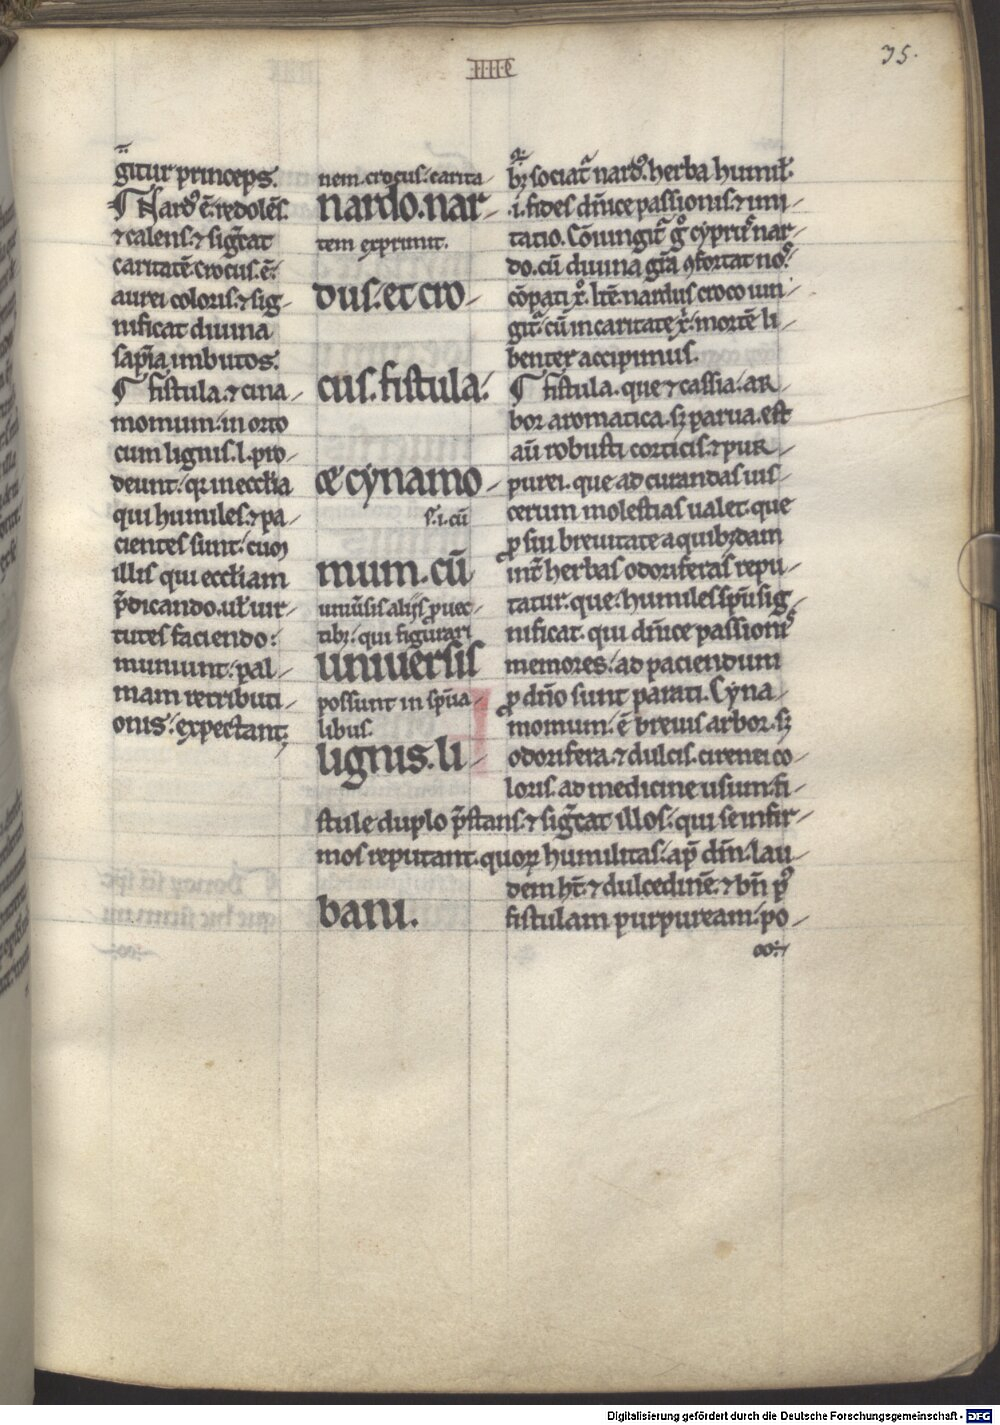 IIIIC
35.
gitur princeps.
¶ Nardꝰ ē. redolēs.
⁊ calens. ⁊ sig̃cat
caritatē. crocus. ē.
aurei coloris. ⁊ sig-
nificat diuina
sapīa imbutos.
¶ fistula. ⁊ cina-
momum. in orto
cum lignis. l. pro-
deunt. qꝛ in eccl̄ia
qui humiles. ⁊ pa-
cientes sunt. cuꝫ
illis qui eccl̄iam
p̄dicando. ul̄ uir-
tutes faciendo.
muniunt. pal-
mam retributi-
onis. expectant.
nem. crocus. carita-
nardo. nar-
tem exprimit.
dus. et cro-
cus. fistula.
ce cynamo-
s. i. cū
mum. cū
uniūsis alijs ꝓuec-
tibꝫ. qui figurari
uniuersis
possunt in sp̄ua-
libus.
lignis. li-
bani.
bꝫ sociat᷑ nardꝰ. herba humil̄.
.i. fides dn̄ice passionis. ⁊ imi-
tatio. Cōiungit᷑ gͦ cypr᷑ nar-
do. cū diuina gr̄a ꝯfortat noˢ.
cōpati xͦ. Itē. nardus croco iun-
git᷑. cū in caritate xͥ. mortē li-
benter accipimus.
¶ fistula. que ⁊ cassia. ar-
bor aromatica. sꝫ parua. est
aū robusti corticis. ⁊ pur-
purei. que ad curandas uis-
cerum molestias ualet. que
ꝓ sui breuitate a quibꝫdam
int᷑ herbas odoriferas repu-
tatur. que. humiles sp̄u sig-
nificat. qui dn̄ice passioniˢ
memores. ad paciendum
ꝓ dn̄o sunt parati. Cyna-
momum. ē breuis arbor. sꝫ
odorifera. ⁊ dulcis. cirenei co-
loris. ad medicine usum. fi-
stule duplo p̄stans. ⁊ sig̃cat illos. qui se infir-
mos reputant. quoꝝ humilitas. ap̄ dm̄. lau-
dem hn̄t. ⁊ dulcedinē. ⁊ bn̄ pꝰ
fistulam purpuream. po-
Digitalisierung gefördert durch die Deutsche Forschungsgemeinschaft - DFG